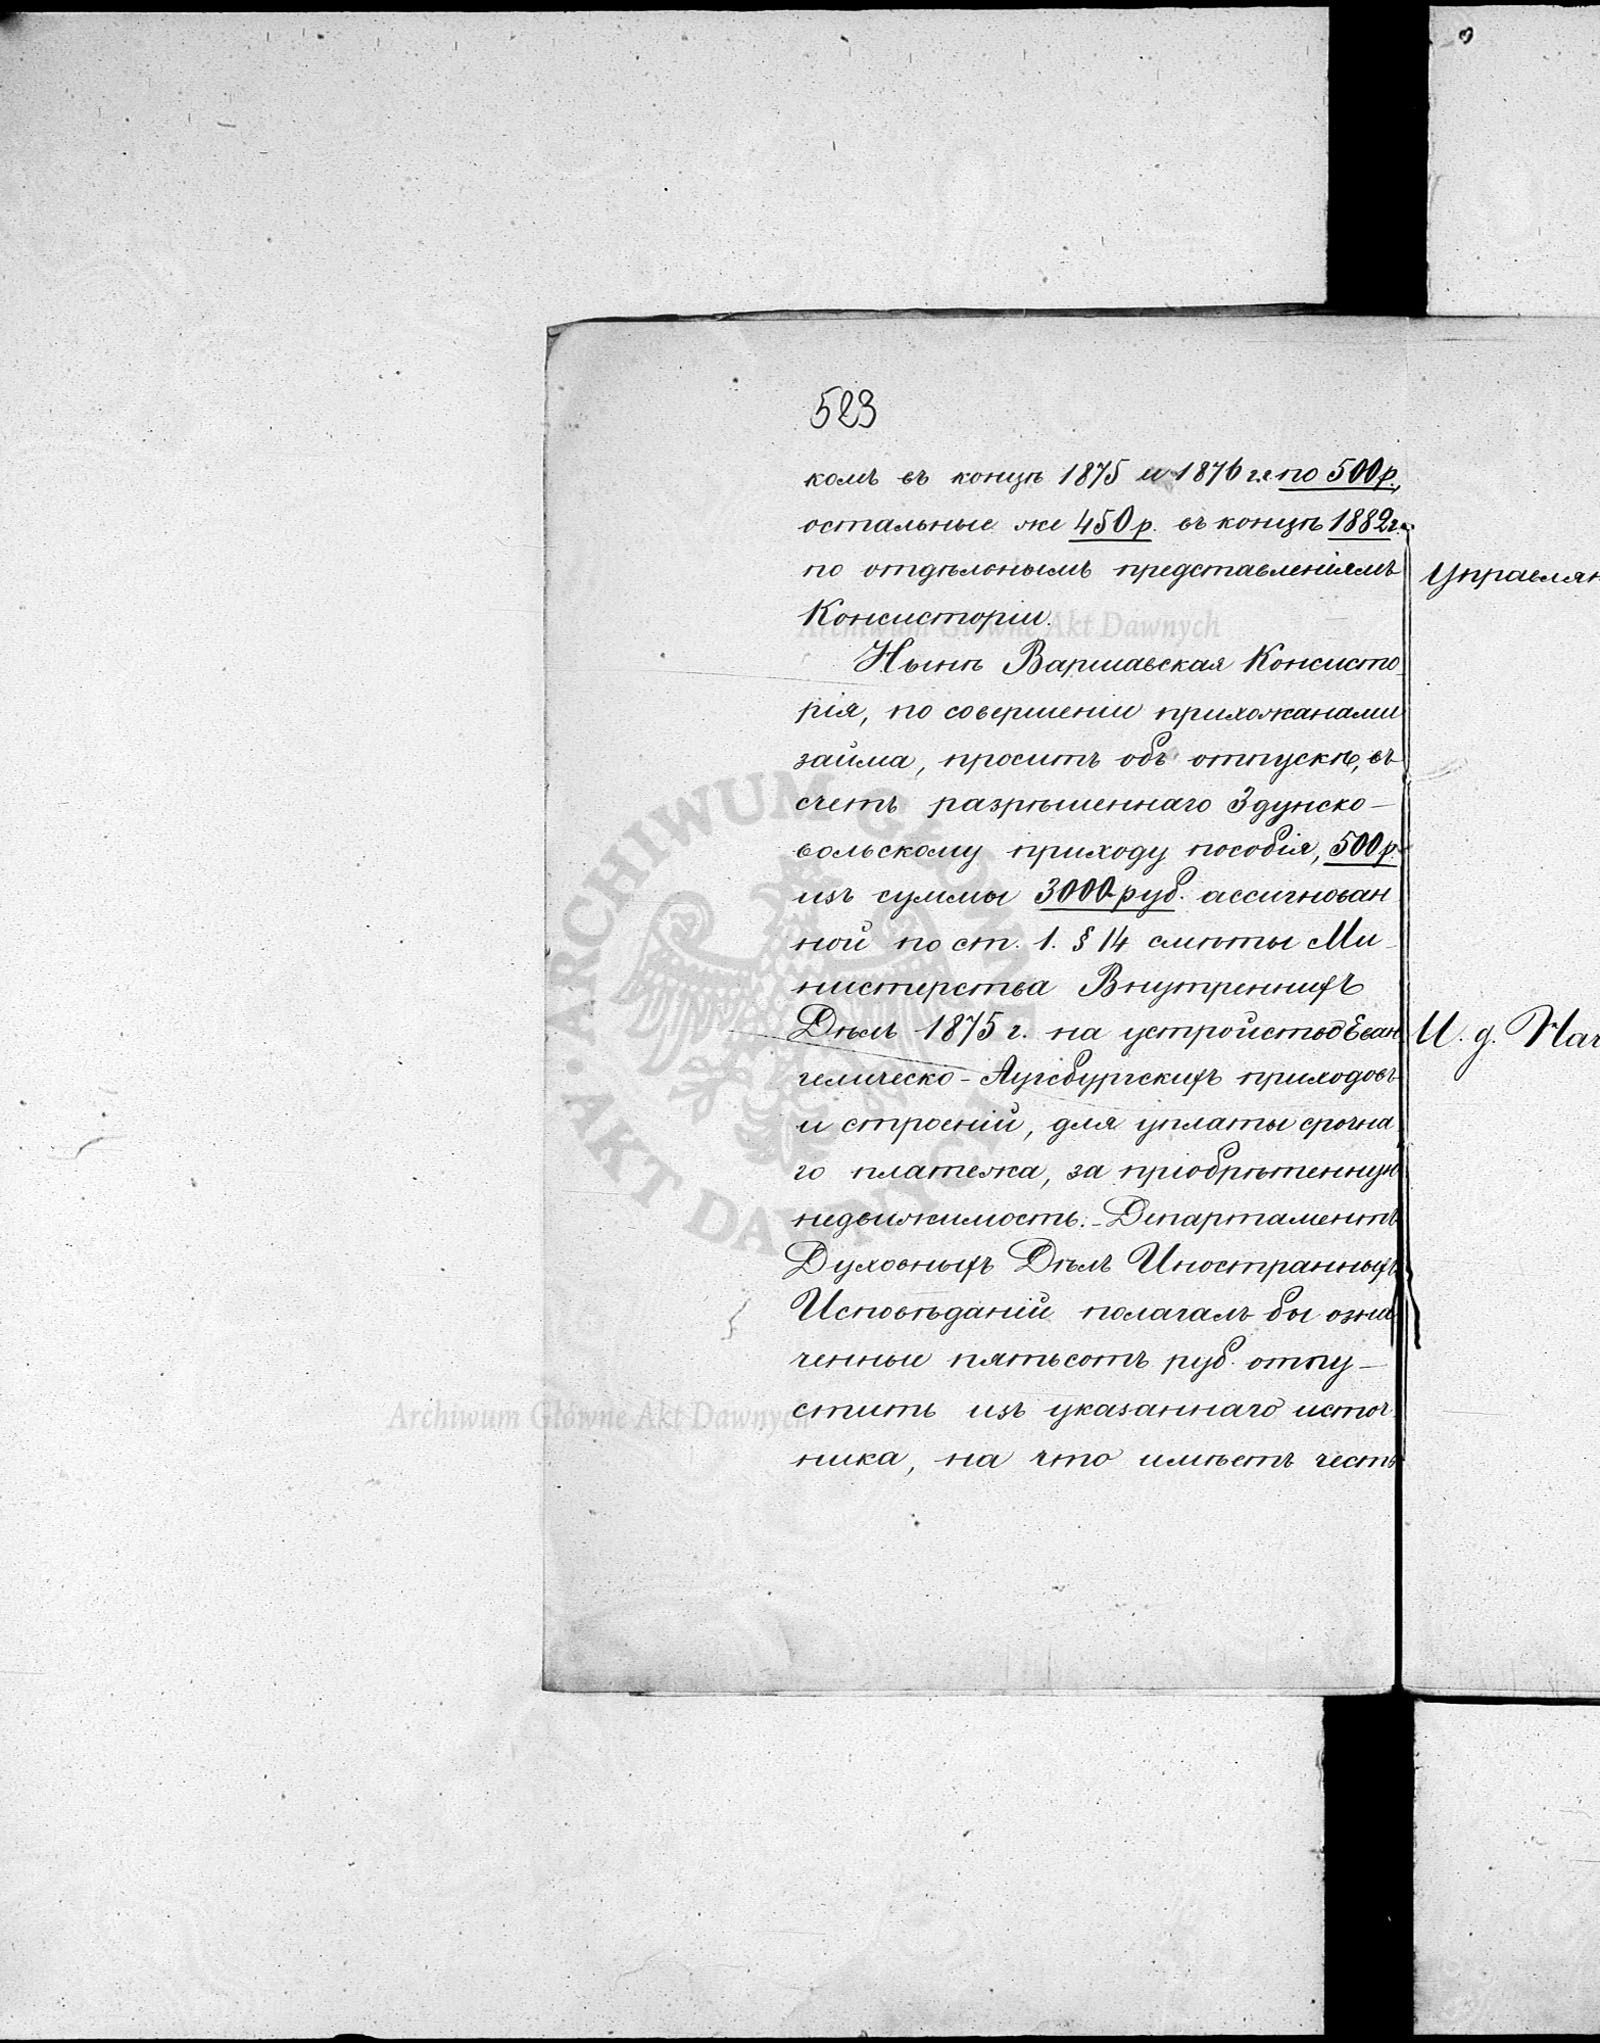 523
комъ въ концѣ 1875 и 1876 г.г. по 500 р.,
остальные же 450 р. въ концѣ 1882 г.
по отдѣльнымъ представленіямъ
Консисторіи.
Нынѣ Варшавская Консисто-
рія, по совершеніи прихожанами
займа, проситъ объ отпускѣ, въ
счетъ разрѣшеннаго Здунско-
вольскому приходу пособія, 500 р.
изъ суммы 3000 руб. ассигнован
ной по ст. 1. § 14 смѣты Ми-
нистерства Внутреннихъ
Дѣлъ 1875 г. на устройство Еван
гелическо-Аугсбургскихъ приходовъ
и строеній, для уплаты срочна
го платежа, за пріобрѣтенную
недвижимость. - Департаментъ
Духовныхъ Дѣлъ Иностранныхъ
Исповѣданій полагалъ бы озна
ченные пятьсотъ руб. отпу-
стить изъ указаннаго источ
ника, на что имѣетъ честь
Управля
И. д. Нач
Archiwum Główne Akt Dawnych
ARCHIWUM GŁÓWNE · AKT DAWNYCH ·
Archiwum Główne Akt Dawnych